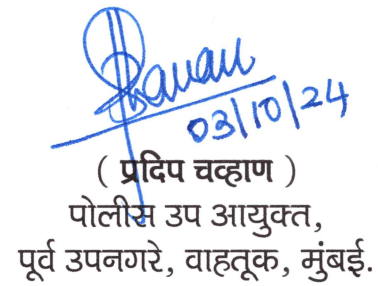 Chavan
03/10/24
( प्रदिप चव्हाण )
पोलीस उप आयुक्त,
पूर्व उपनगरे, वाहतूक, मुंबई.